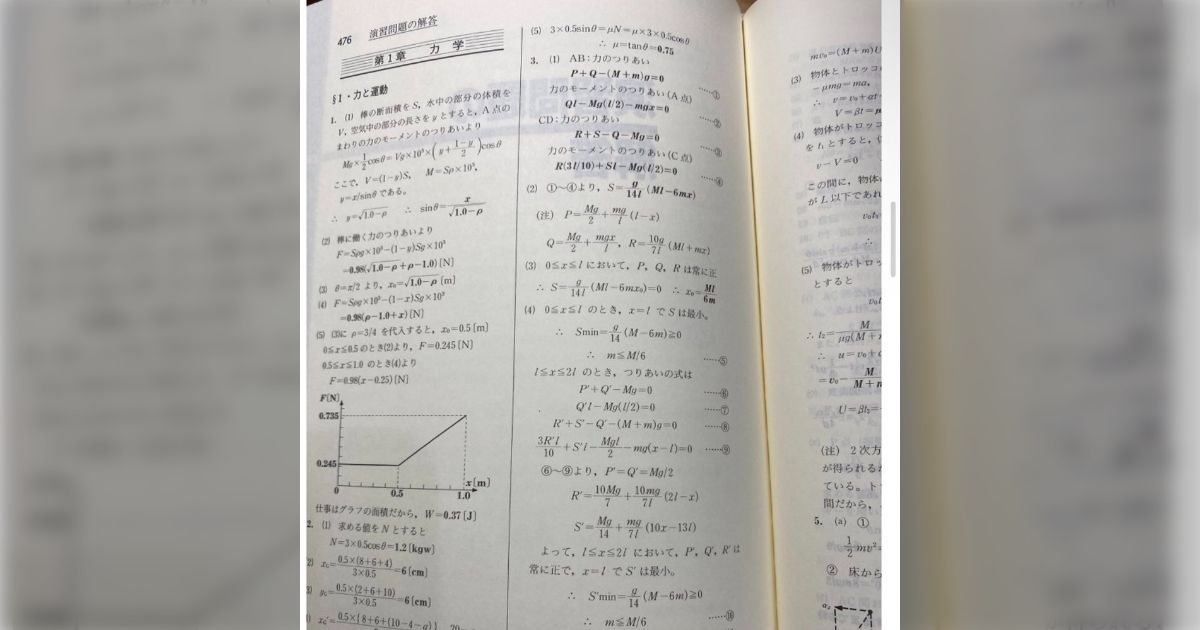 476 演習問題の解答
第1章 力 学
§1・力と運動
1. (1) 棒の断面積をS, 水中の部分の体積を
V, 空気中の部分の長さをyとすると, A点の
まわりの力のモーメントのつりあいより
Mg×1/2cosθ=Vg×10³×(y+(1−y)/2)cosθ
ここで, V=(1−y)S, M=Sρ×10³,
y=x/sinθ である。
∴ y=√(1.0−ρ) ∴ sinθ=x/√(1.0−ρ)
(2) 棒に働く力のつりあいより
F=Sρg×10³−(1−y)Sg×10³
=0.98(√(1.0−ρ)+ρ−1.0)[N]
(3) θ=π/2 より, x₀=√(1.0−ρ)[m]
(4) F=Sρg×10³−(1−x)Sg×10³
=0.98(ρ−1.0+x)[N]
(5) (3)に ρ=3/4 を代入すると, x₀=0.5[m]
0≦x≦0.5のとき(2)より, F=0.245[N]
0.5≦x≦1.0 のとき(4)より
F=0.98(x−0.25)[N]
F[N]
0.735
0.245
0 0.5 1.0 x[m]
仕事はグラフの面積だから, W=0.37[J]
2. (1) 求める値をNとすると
N=3×0.5cosθ=1.2[kgw]
2) x_G=0.5×(8+6+4)/(3×0.5)=6[cm]
3) y_G=0.5×(2+6+10)/(3×0.5)=6[cm]
(5) 3×0.5sinθ=μN=μ×3×0.5cosθ
∴ μ=tanθ=0.75
3. (1) AB:力のつりあい
P+Q−(M+m)g=0 ……①
力のモーメントのつりあい(A点)
Ql−Mg(l/2)−mgx=0 ……②
CD:力のつりあい
R+S−Q−Mg=0 ……③
力のモーメントのつりあい(C点)
R(3l/10)+Sl−Mg(l/2)=0 ……④
(2) ①〜④より, S=g/14l (Ml−6mx)
(注) P=Mg/2+mg/l (l−x)
Q=Mg/2+mgx/l, R=10g/7l (Ml+mx)
(3) 0≦x≦l において, P, Q, R は常に正
∴ S=g/14l (Ml−6mx₀)=0 ∴ x₀=Ml/6m
(4) 0≦x≦l のとき, x=l でSは最小。
∴ Smin=g/14 (M−6m)≧0
∴ m≦M/6 ……⑤
l≦x≦2l のとき, つりあいの式は
P′+Q′−Mg=0 ……⑥
Q′l−Mg(l/2)=0 ……⑦
R′+S′−Q′−(M+m)g=0 ……⑧
3R′l/10+S′l−Mgl/2−mg(x−l)=0 ……⑨
⑥〜⑨より, P′=Q′=Mg/2
R′=10Mg/7+10mg/7l (2l−x)
S′=Mg/14+mg/7l (10x−13l)
よって, l≦x≦2l において, P′, Q′, R′ は
常に正で, x=l で S′ は最小。
∴ S′min=g/14 (M−6m)≧0
∴ m≦M/6 ……⑩
mv₀=(M+m)U
(3) 物体とトロッコ
−μmg=ma,
∴ v=v₀+at
V=βt=
(4) 物体がトロッコ
をt₁とすると,
v−V=0
この間に, 物体
がL以下であれ
v₀t₁
∴
(5) 物体がトロッ
とすると
v₀t
∴ t₂=M/μg(M+
∴ u=v₀+
=v₀−M/M+m
U=βt₂=
(注) 2次方
が得られる
ている。ト
間だから,
5. (a) ①
1/2mv²=
② 床から